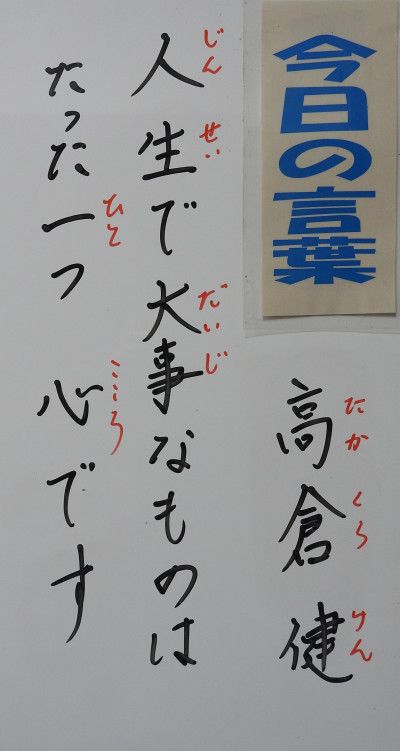 今日の言葉
高倉健
たか くら けん
人生で大事なものは
じん せい だいじ
たった一つ 心です
ひと こころ